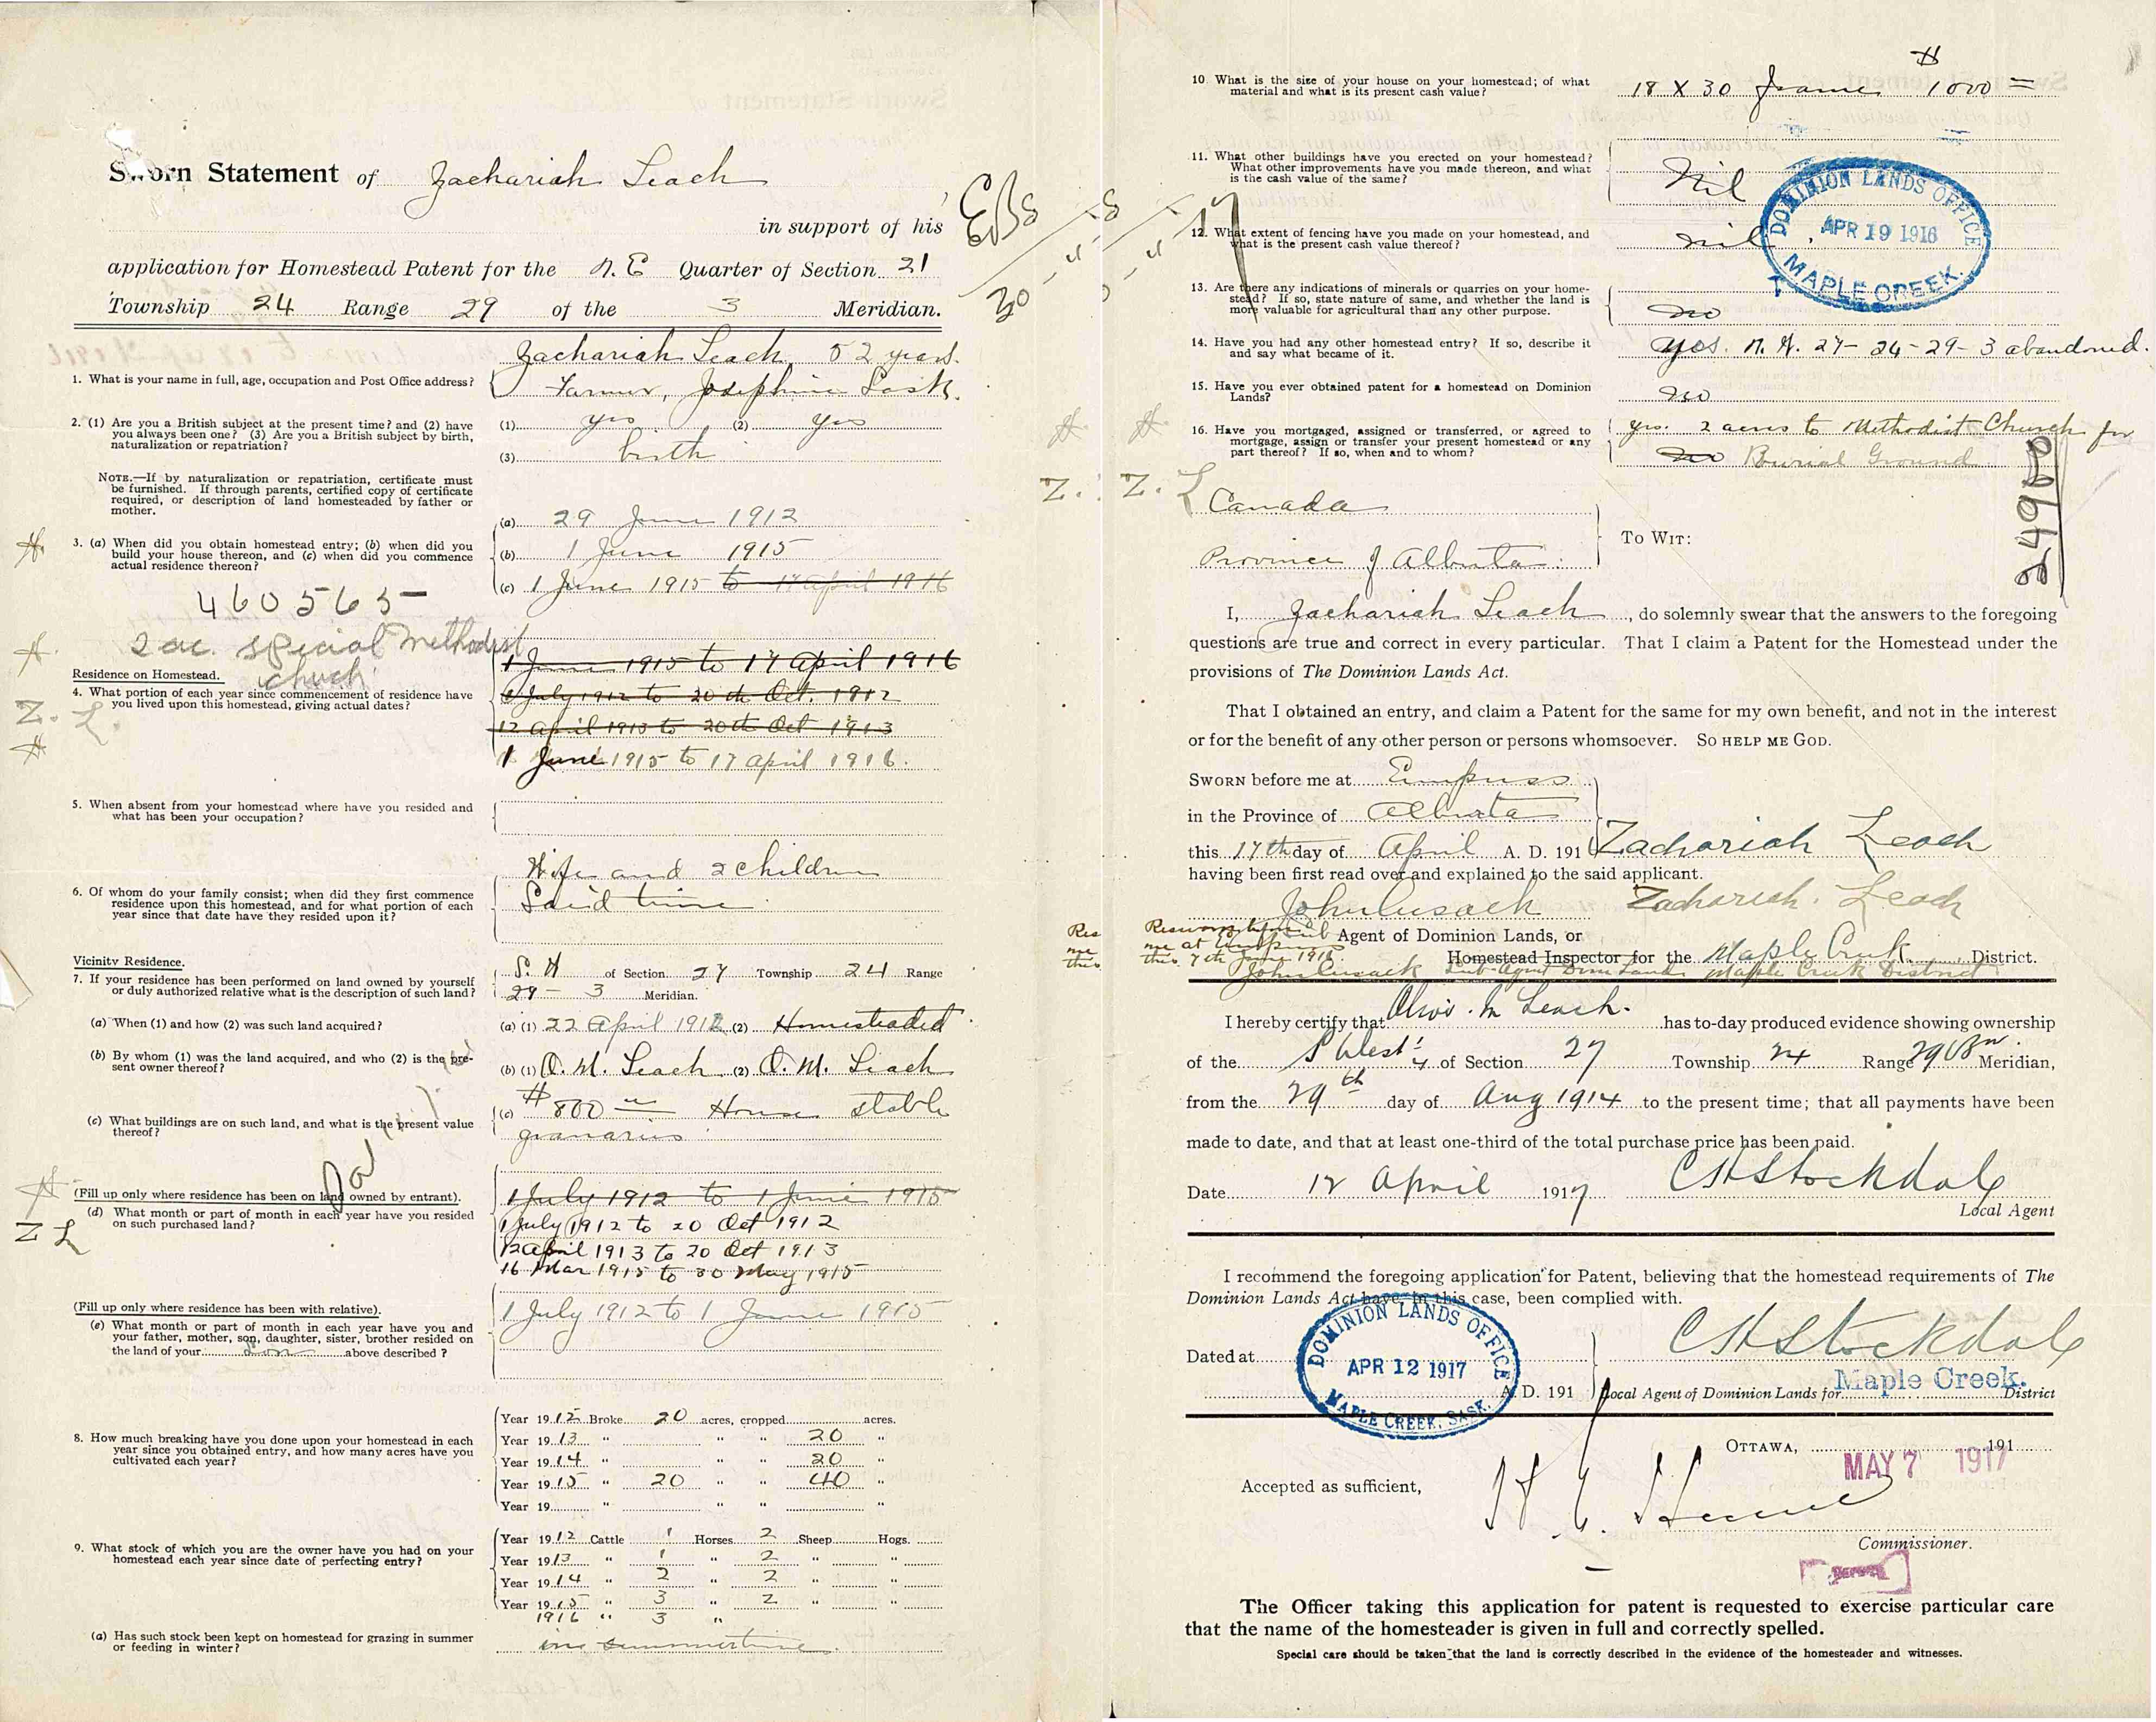 Sworn Statement of Zachariah Leach
in support of his
application for Homestead Patent for the N.E Quarter of Section 21
Township 24 Range 29 of the 3 Meridian.
1. What is your name in full, age, occupation and Post Office address?
Zachariah Leach 52 years.
Farmer, Josephine Sask.
2. (1) Are you a British subject at the present time? and (2) have
you always been one? (3) Are you a British subject by birth,
naturalization or repatriation?
(1) yes (2) yes
(3) birth
NOTE.—If by naturalization or repatriation, certificate must
be furnished. If through parents, certified copy of certificate
required, or description of land homesteaded by father or
mother.
3. (a) When did you obtain homestead entry; (b) when did you
build your house thereon, and (c) when did you commence
actual residence thereon?
(a) 29 June 1912
(b) 1 June 1915
(c) 1 June 1915 to 17 April 1916
460565
2 ac. special Methodist
church
Residence on Homestead.
4. What portion of each year since commencement of residence have
you lived upon this homestead, giving actual dates?
1 June 1915 to 17 April 1916
1 July 1912 to 20th Oct. 1912
12 April 1913 to 20th Oct 1913
1 June 1915 to 17 April 1916.
Z. L.
5. When absent from your homestead where have you resided and
what has been your occupation?
6. Of whom do your family consist; when did they first commence
residence upon this homestead, and for what portion of each
year since that date have they resided upon it?
Wife and 2 children
Said time
Vicinity Residence.
7. If your residence has been performed on land owned by yourself
or duly authorized relative what is the description of such land?
S. W of Section 27 Township 24 Range
29 — 3 Meridian.
(a) When (1) and how (2) was such land acquired?
(a) (1) 22 April 1912 (2) Homesteaded
(b) By whom (1) was the land acquired, and who (2) is the pre-
sent owner thereof?
(b) (1) O. M. Leach (2) O. M. Leach
(c) What buildings are on such land, and what is the present value
thereof?
(c) $800 House stable
granaries
(Fill up only where residence has been on land owned by entrant).
(d) What month or part of month in each year have you resided
on such purchased land?
1 July 1912 to 1 June 1915
1 July 1912 to 20 Oct 1912
12 April 1913 to 20 Oct 1913
16 Mar 1915 to 30 May 1915
Z L
(Fill up only where residence has been with relative).
(e) What month or part of month in each year have you and
your father, mother, son, daughter, sister, brother resided on
the land of your son above described?
1 July 1912 to 1 June 1915
8. How much breaking have you done upon your homestead in each
year since you obtained entry, and how many acres have you
cultivated each year?
Year 1912 Broke 20 acres, cropped acres.
Year 1913 " " " 20 "
Year 1914 " " " 20 "
Year 1915 " 20 " " 40 "
Year 19 " " " "
9. What stock of which you are the owner have you had on your
homestead each year since date of perfecting entry?
Year 1912 Cattle 1 Horses 2 Sheep Hogs.
Year 1913 " 1 " 2 " "
Year 1914 " 2 " 2 " "
Year 1915 " 3 " 2 " "
1916 " 3 "
(a) Has such stock been kept on homestead for grazing in summer
or feeding in winter?
in summertime
10. What is the size of your house on your homestead; of what
material and what is its present cash value?
18 X 30 frame $1000 =
11. What other buildings have you erected on your homestead?
What other improvements have you made thereon, and what
is the cash value of the same?
Nil
12. What extent of fencing have you made on your homestead, and
what is the present cash value thereof?
nil
DOMINION LANDS OFFICE
APR 19 1916
MAPLE CREEK.
13. Are there any indications of minerals or quarries on your home-
stead? If so, state nature of same, and whether the land is
more valuable for agricultural than any other purpose.
no
14. Have you had any other homestead entry? If so, describe it
and say what became of it.
yes. N.W. 27-24-29-3 abandoned.
15. Have you ever obtained patent for a homestead on Dominion
Lands?
no
16. Have you mortgaged, assigned or transferred, or agreed to
mortgage, assign or transfer your present homestead or any
part thereof? If so, when and to whom?
yes. 2 acres to Methodist Church for
no Burial Ground
Z. L
Canada
Province of Alberta
TO WIT:
I, Zachariah Leach, do solemnly swear that the answers to the foregoing
questions are true and correct in every particular. That I claim a Patent for the Homestead under the
provisions of The Dominion Lands Act.
That I obtained an entry, and claim a Patent for the same for my own benefit, and not in the interest
or for the benefit of any other person or persons whomsoever. SO HELP ME GOD.
SWORN before me at Empress
in the Province of Alberta
this 17th day of April A. D. 191
Zachariah Leach
having been first read over and explained to the said applicant.
John Cusack
Zachariah Leach
Resworn before
me at Empress
this 7th June 1916
Sub Agent of Dominion Lands, or
Homestead Inspector for the Maple Creek District.
John Cusack Sub-Agent Dom Lands Maple Creek District
I hereby certify that Olvis M Leach has to-day produced evidence showing ownership
of the S West ¼ of Section 27 Township 24 Range 29 W 3rd Meridian,
from the 29th day of Aug 1914 to the present time; that all payments have been
made to date, and that at least one-third of the total purchase price has been paid.
Date 12 April 1917 C H Stockdale
Local Agent
I recommend the foregoing application for Patent, believing that the homestead requirements of The
Dominion Lands Act have, in this case, been complied with.
DOMINION LANDS OFFICE
APR 12 1917
MAPLE CREEK, SASK.
C H Stockdale
Dated at
A. D. 191 Local Agent of Dominion Lands for Maple Creek. District
OTTAWA, 191
MAY 7 1917
Accepted as sufficient,
Commissioner.
The Officer taking this application for patent is requested to exercise particular care
that the name of the homesteader is given in full and correctly spelled.
Special care should be taken that the land is correctly described in the evidence of the homesteader and witnesses.